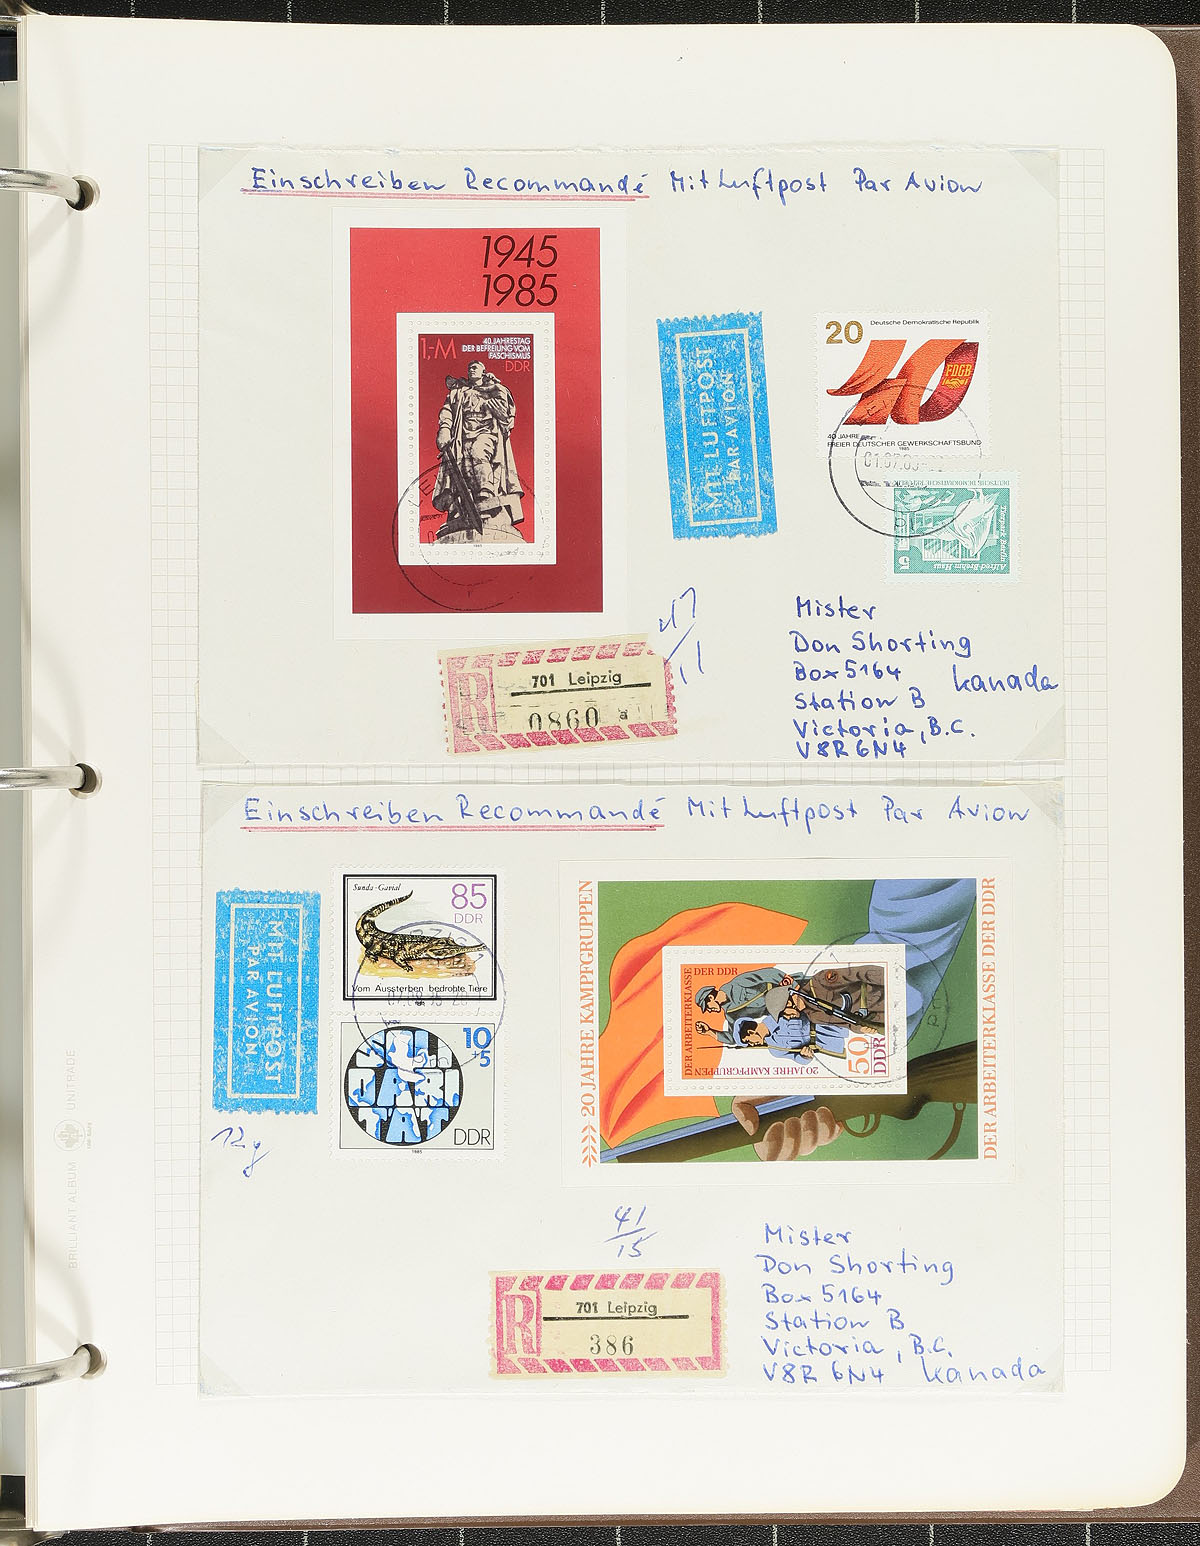 Einschreiben Recommandé Mit Luftpost Par Avion
1945
1985
1,-M
40. JAHRESTAG
DER BEFREIUNG VOM
FASCHISMUS
DDR
1985
MIT LUFTPOST
PAR AVION
20 Deutsche Demokratische Republik
40
FDGB
40 JAHRE
FREIER DEUTSCHER GEWERKSCHAFTSBUND
1985
01.07.
DEUTSCHE DEMOKRATISCHE REPUBLIK
Tierpark Berlin
Alfred-Brehm-Haus
5
R
701 Leipzig
0860 a
Mister
Don Shorting
Box 5164
Kanada
Station B
Victoria, B.C.
V8R 6N4
Einschreiben Recommandé Mit Luftpost Par Avion
MIT LUFTPOST
PAR AVION
Sunda-Gavial
85
DDR
Vom Aussterben bedrohte Tiere
10
+5
SOLIDARITÄT
DDR
1985
20 JAHRE KAMPFGRUPPEN
DER ARBEITERKLASSE DER DDR
DER ARBEITERKLASSE DER DDR
20 JAHRE KAMPFGRUPPEN
50
DDR
12g
41
15
R
701 Leipzig
386
Mister
Don Shorting
Box 5164
Station B
Victoria, B.C.
V8R 6N4 Kanada
BRILLIANT ALBUM
UNITRADE